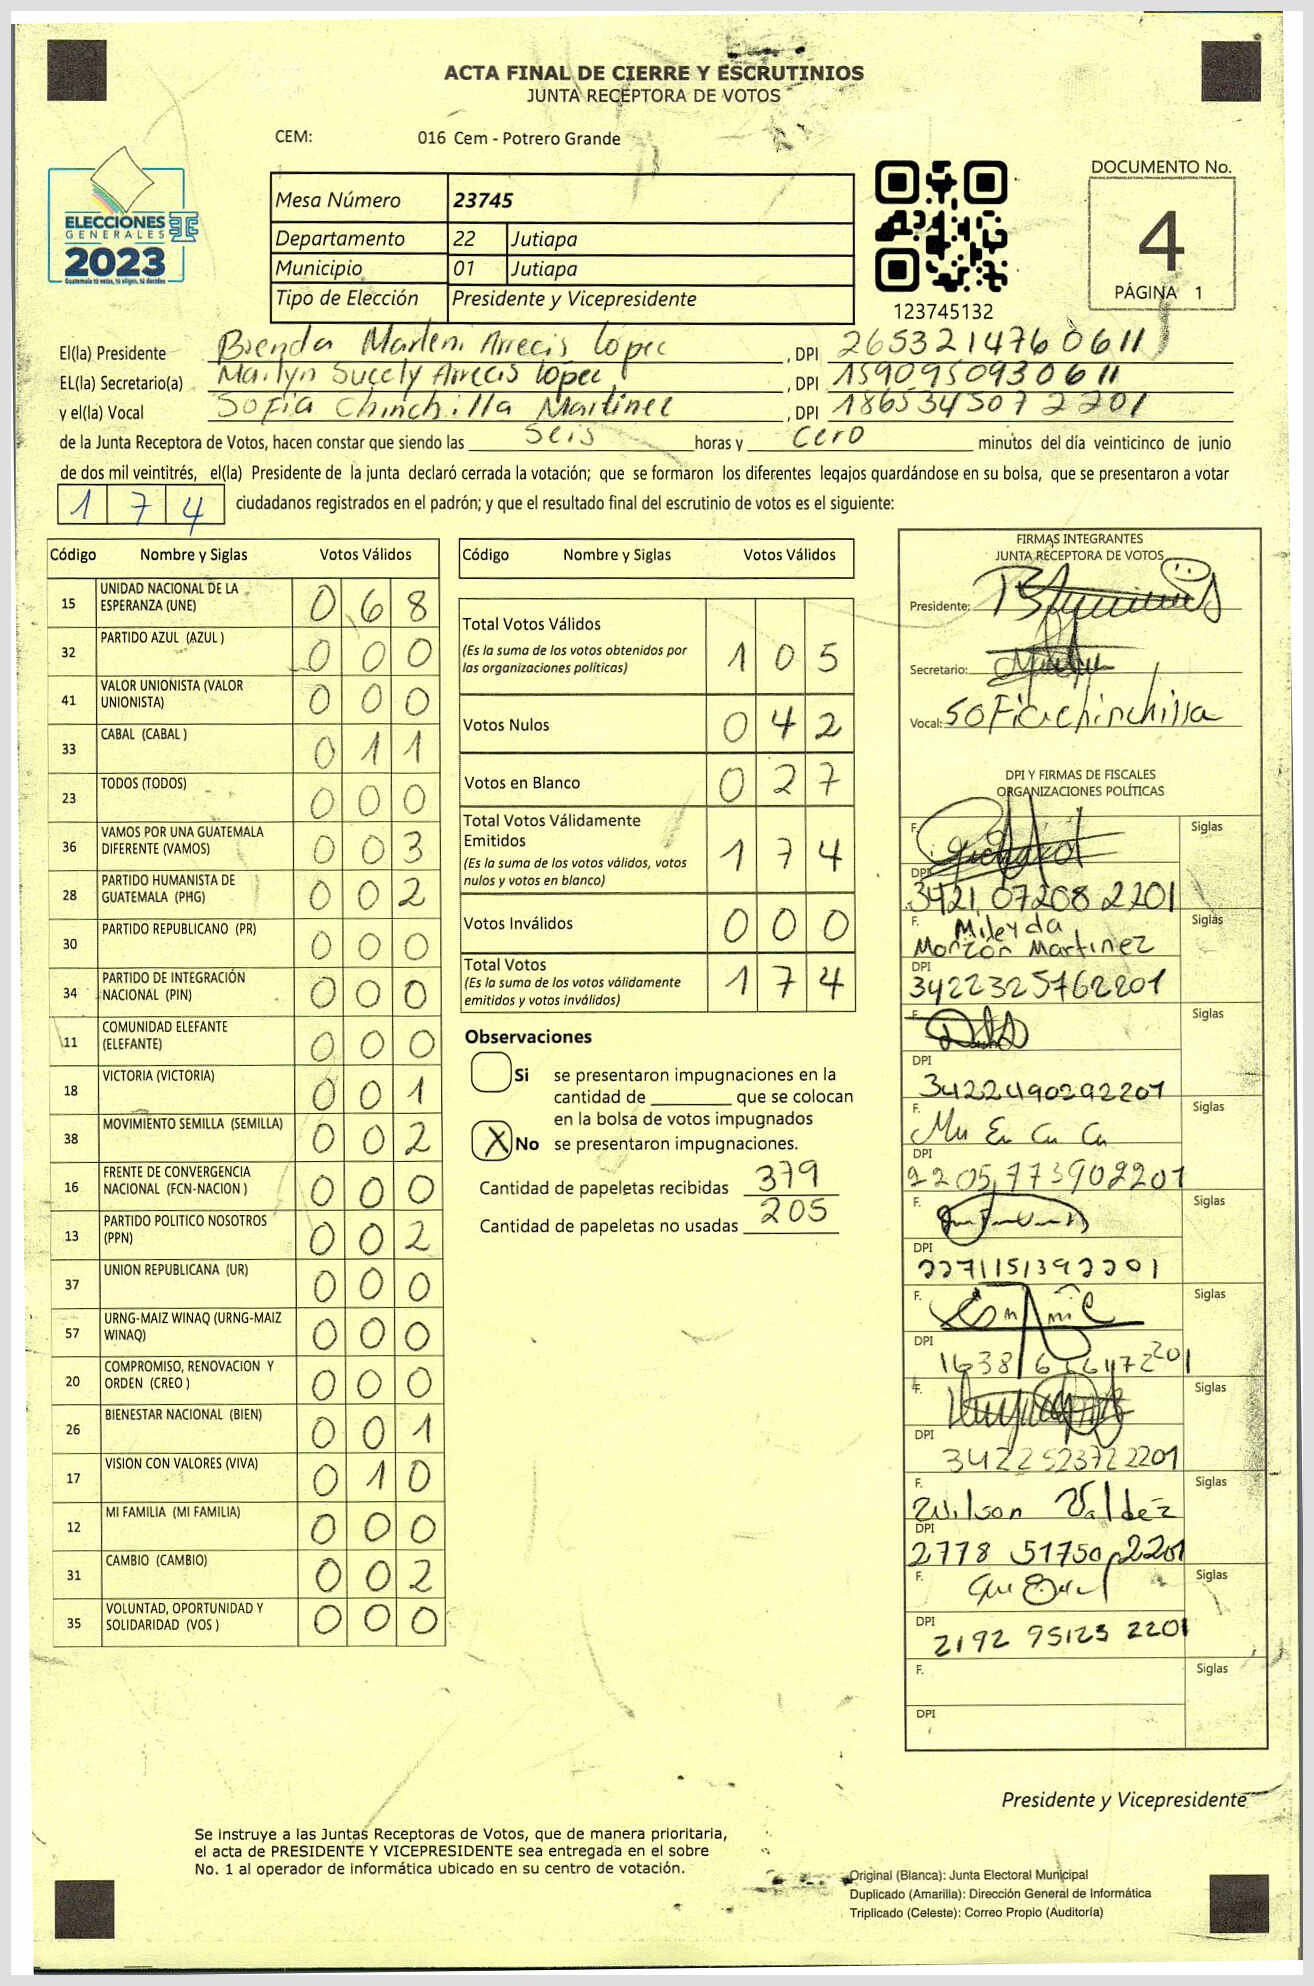 ACTA FINAL DE CIERRE Y ESCRUTINIOS
JUNTA RECEPTORA DE VOTOS
CEM: 016 Cem - Potrero Grande
ELECCIONES
GENERALES
2023
Guatemala tú votas, tú eliges, tú decides
Mesa Número 23745
Departamento 22 Jutiapa
Municipio 01 Jutiapa
Tipo de Elección Presidente y Vicepresidente
123745132
DOCUMENTO No.
4
PÁGINA 1
El(la) Presidente Brenda Marleni Arrecis lopez , DPI 2653214760611
EL(la) Secretario(a) Marlyn Sucely Arrecis lopez , DPI 1590950930611
y el(la) Vocal Sofia Chinchilla Martinez , DPI 1865345072201
de la Junta Receptora de Votos, hacen constar que siendo las seis horas y cero minutos del día veinticinco de junio
de dos mil veintitrés, el(la) Presidente de la junta declaró cerrada la votación; que se formaron los diferentes legajos quardándose en su bolsa, que se presentaron a votar
174 ciudadanos registrados en el padrón; y que el resultado final del escrutinio de votos es el siguiente:
Código Nombre y Siglas Votos Válidos
15 UNIDAD NACIONAL DE LA ESPERANZA (UNE) 068
32 PARTIDO AZUL (AZUL ) 000
41 VALOR UNIONISTA (VALOR UNIONISTA) 000
33 CABAL (CABAL ) 011
23 TODOS (TODOS) 000
36 VAMOS POR UNA GUATEMALA DIFERENTE (VAMOS) 003
28 PARTIDO HUMANISTA DE GUATEMALA (PHG) 002
30 PARTIDO REPUBLICANO (PR) 000
34 PARTIDO DE INTEGRACIÓN NACIONAL (PIN) 000
11 COMUNIDAD ELEFANTE (ELEFANTE) 000
18 VICTORIA (VICTORIA) 001
38 MOVIMIENTO SEMILLA (SEMILLA) 002
16 FRENTE DE CONVERGENCIA NACIONAL (FCN-NACION ) 000
13 PARTIDO POLITICO NOSOTROS (PPN) 002
37 UNION REPUBLICANA (UR) 000
57 URNG-MAIZ WINAQ (URNG-MAIZ WINAQ) 000
20 COMPROMISO, RENOVACION Y ORDEN (CREO ) 000
26 BIENESTAR NACIONAL (BIEN) 001
17 VISION CON VALORES (VIVA) 010
12 MI FAMILIA (MI FAMILIA) 000
31 CAMBIO (CAMBIO) 002
35 VOLUNTAD, OPORTUNIDAD Y SOLIDARIDAD (VOS ) 000
Código Nombre y Siglas Votos Válidos
Total Votos Válidos 105
(Es la suma de los votos obtenidos por
las organizaciones políticas)
Votos Nulos 042
Votos en Blanco 027
Total Votos Válidamente
Emitidos 174
(Es la suma de los votos válidos, votos
nulos y votos en blanco)
Votos Inválidos 000
Total Votos 174
(Es la suma de los votos válidamente
emitidos y votos inválidos)
Observaciones
Si se presentaron impugnaciones en la
cantidad de ________ que se colocan
en la bolsa de votos impugnados
X No se presentaron impugnaciones.
Cantidad de papeletas recibidas 379
Cantidad de papeletas no usadas 205
FIRMAS INTEGRANTES
JUNTA RECEPTORA DE VOTOS
Presidente:
Secretario:
Vocal: Sofia chinchilla
DPI Y FIRMAS DE FISCALES
ORGANIZACIONES POLÍTICAS
F. Siglas
DPI 3421 07208 2201
F. Mileyda Siglas
Monzón Martinez
DPI 3422325762201
F. Siglas
DPI 3422490292201
F. Siglas
DPI 2205773902201
F. Siglas
DPI 2271151392201
F. Siglas
DPI
F. Siglas
DPI 3422523722201
F. Wilson Valdez Siglas
DPI 2778 51750 2201
F. Siglas
DPI 2192 95125 2201
F. Siglas
DPI
Presidente y Vicepresidente
Se instruye a las Juntas Receptoras de Votos, que de manera prioritaria,
el acta de PRESIDENTE Y VICEPRESIDENTE sea entregada en el sobre
No. 1 al operador de informática ubicado en su centro de votación.
Original (Blanca): Junta Electoral Municipal
Duplicado (Amarilla): Dirección General de Informática
Triplicado (Celeste): Correo Propio (Auditoría)